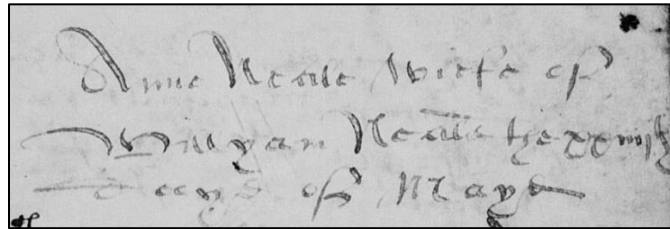 Anne Neale Wiefe of
Willyan Neale the xxiiijth
Daye of Maye